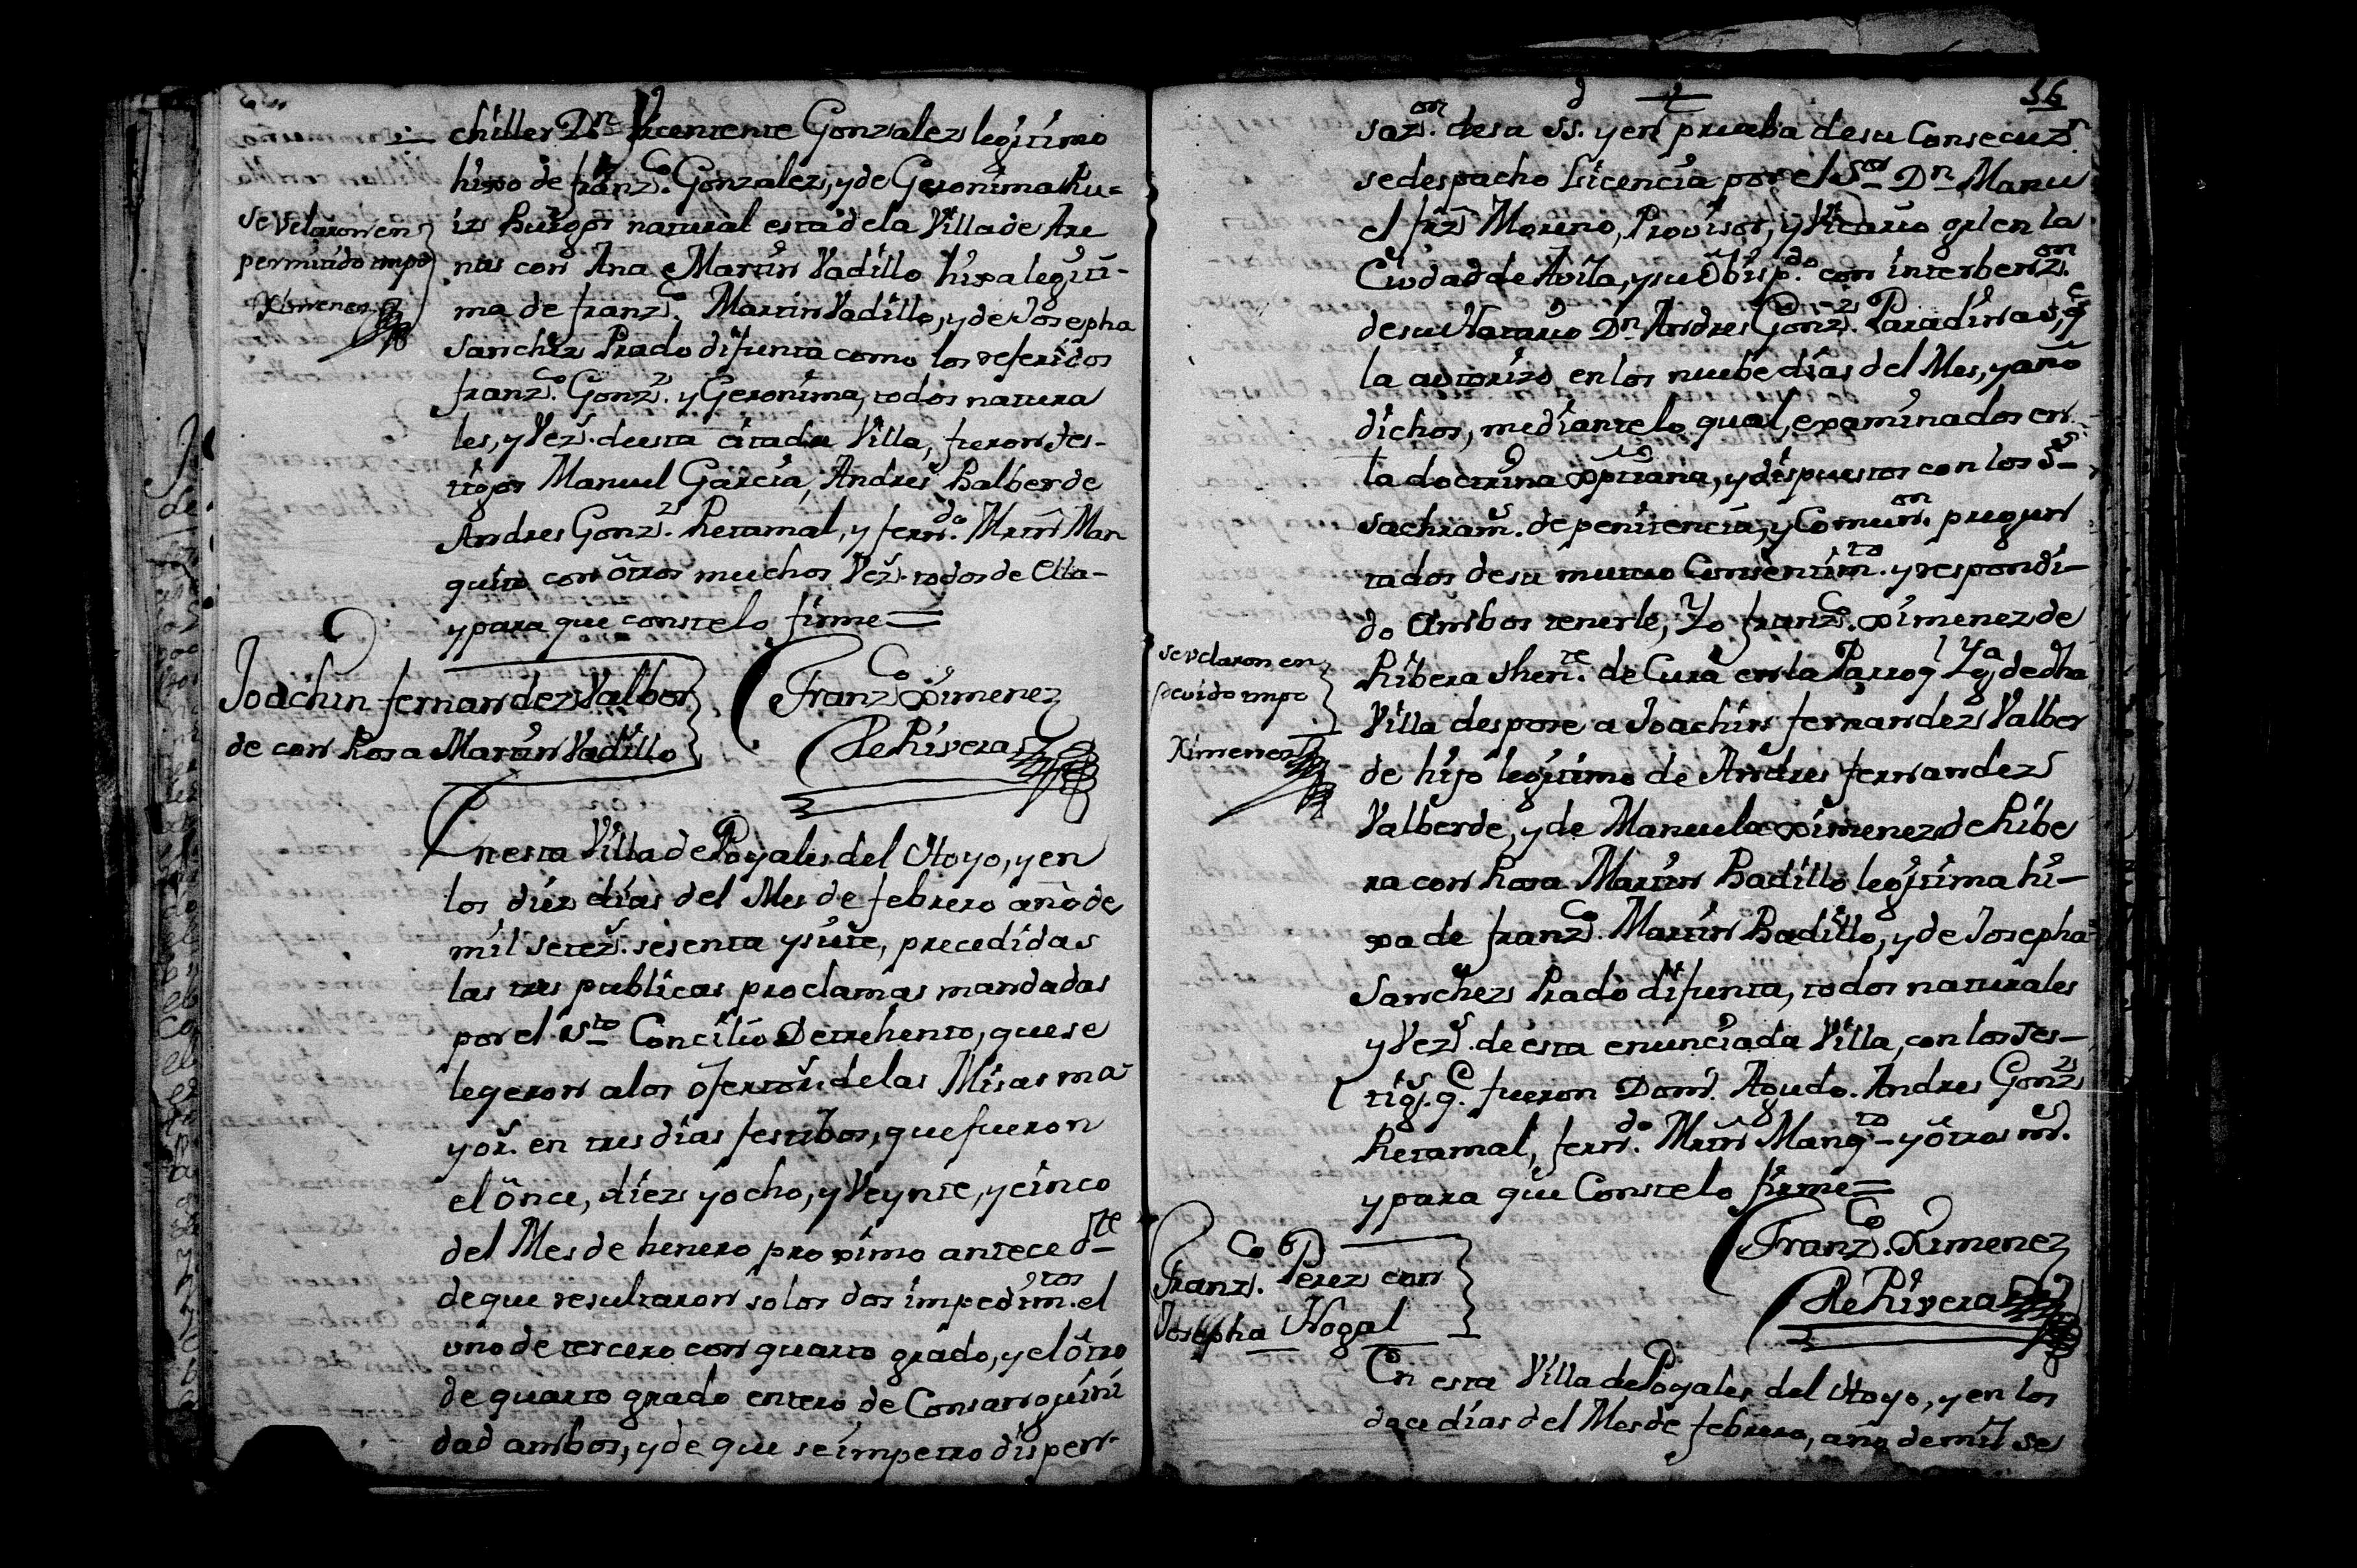 chiller Dn. Vicentente Gonzalez legitimo
hixo de franzco. Gonzalez, y de Geronima Ru=
iz Burgos natural esta de la Villa de Are
nas con Ana Martin Vadillo hixa legiti-
ma de franzco. Martin Vadillo, y de Josepha
Sanchez Prado difunta como los referidos
franzco. Gonzz. y Geronima, todos natura
les, y Vezs. de esta citada Villa, fueron tes-
tigos Manuel Garcia, Andres Balberde
Andres Gonzz. Retamal, y ferndo. Mrñ Man
quito con ôtros muchos Vezs. todos de ella-
y para que conste lo firme=
Se Velaron en
permitido tmpo
Ximenez
Franzco Ximenez
de Rivera
Joachin fernandez Valber
de con Rosa Martin Vadillo
En esta Villa de Poyales del Hoyo, y en
los diez dias del Mes de febrero año de
mil setezs. sesenta y siete, precedidas
las tres publicas proclamas mandadas
por el Sto Concilio de trehento, que se
legeron a los ofertors. de las Misas ma
yors. en tres dias festibos, que fueron
el ônce, diez y ocho, y Veynte, y cinco
del Mes de henero proximo anteced te
de que resultaron solos dos impedimtos. el
uno de tercero con quarto grado, y el ôtro
de quarto grado entero de Consanguini
dad ambos, y de que se impetro dispen-
36
sazon. de su SS. y en prueba de su Consecuzn.
se despacho Licencia por el Sor Dn Manu
el frz Moreno, Provisor, y Vicario grl en la
Ciudad de Avila, y su Obispdo. con interbenzon.
de su Notario Dn Andres Gonzz. Paradinas, qe
la autorizo en los nuebe dias del Mes, y año
dichos, mediante lo qual, examinados en
la doctrina xptiana, y dispuestos con los Stos
sachrams. de penitencia, y Comunon. pregun
tados de su mutuo Consentimto. y respondi-
do ambos tenerle, Yo franzco. Ximenez de
Ribera thente. de Cura en la Parroql Ygª de dha
Villa despose a Joachin fernandez Valber
de hijo legitimo de Andres fernandez
Valberde, y de Manuela Ximenez de Ribe
ra con Rosa Martin Badillo legitima hi-
xa de franzco. Martin Badillo, y de Josepha
Sanchez Prado difunta, todos naturales
y Vezs. de esta enunciada Villa, con los tes-
tigs. qe. fueron Domo. Agudo. Andres Gonzz
Retamal, ferndo. Mrñ Manqto y ôtros ms.
y para que Conste lo firme=
se velaron en
devido tmpo
Ximenez
Franzco. Ximenez
de Rivera
Franzco. Perez con
Josepha Nogal
En esta Villa de Poyales del Hoyo, y en los
doce dias del Mes de febrero, año de mil se